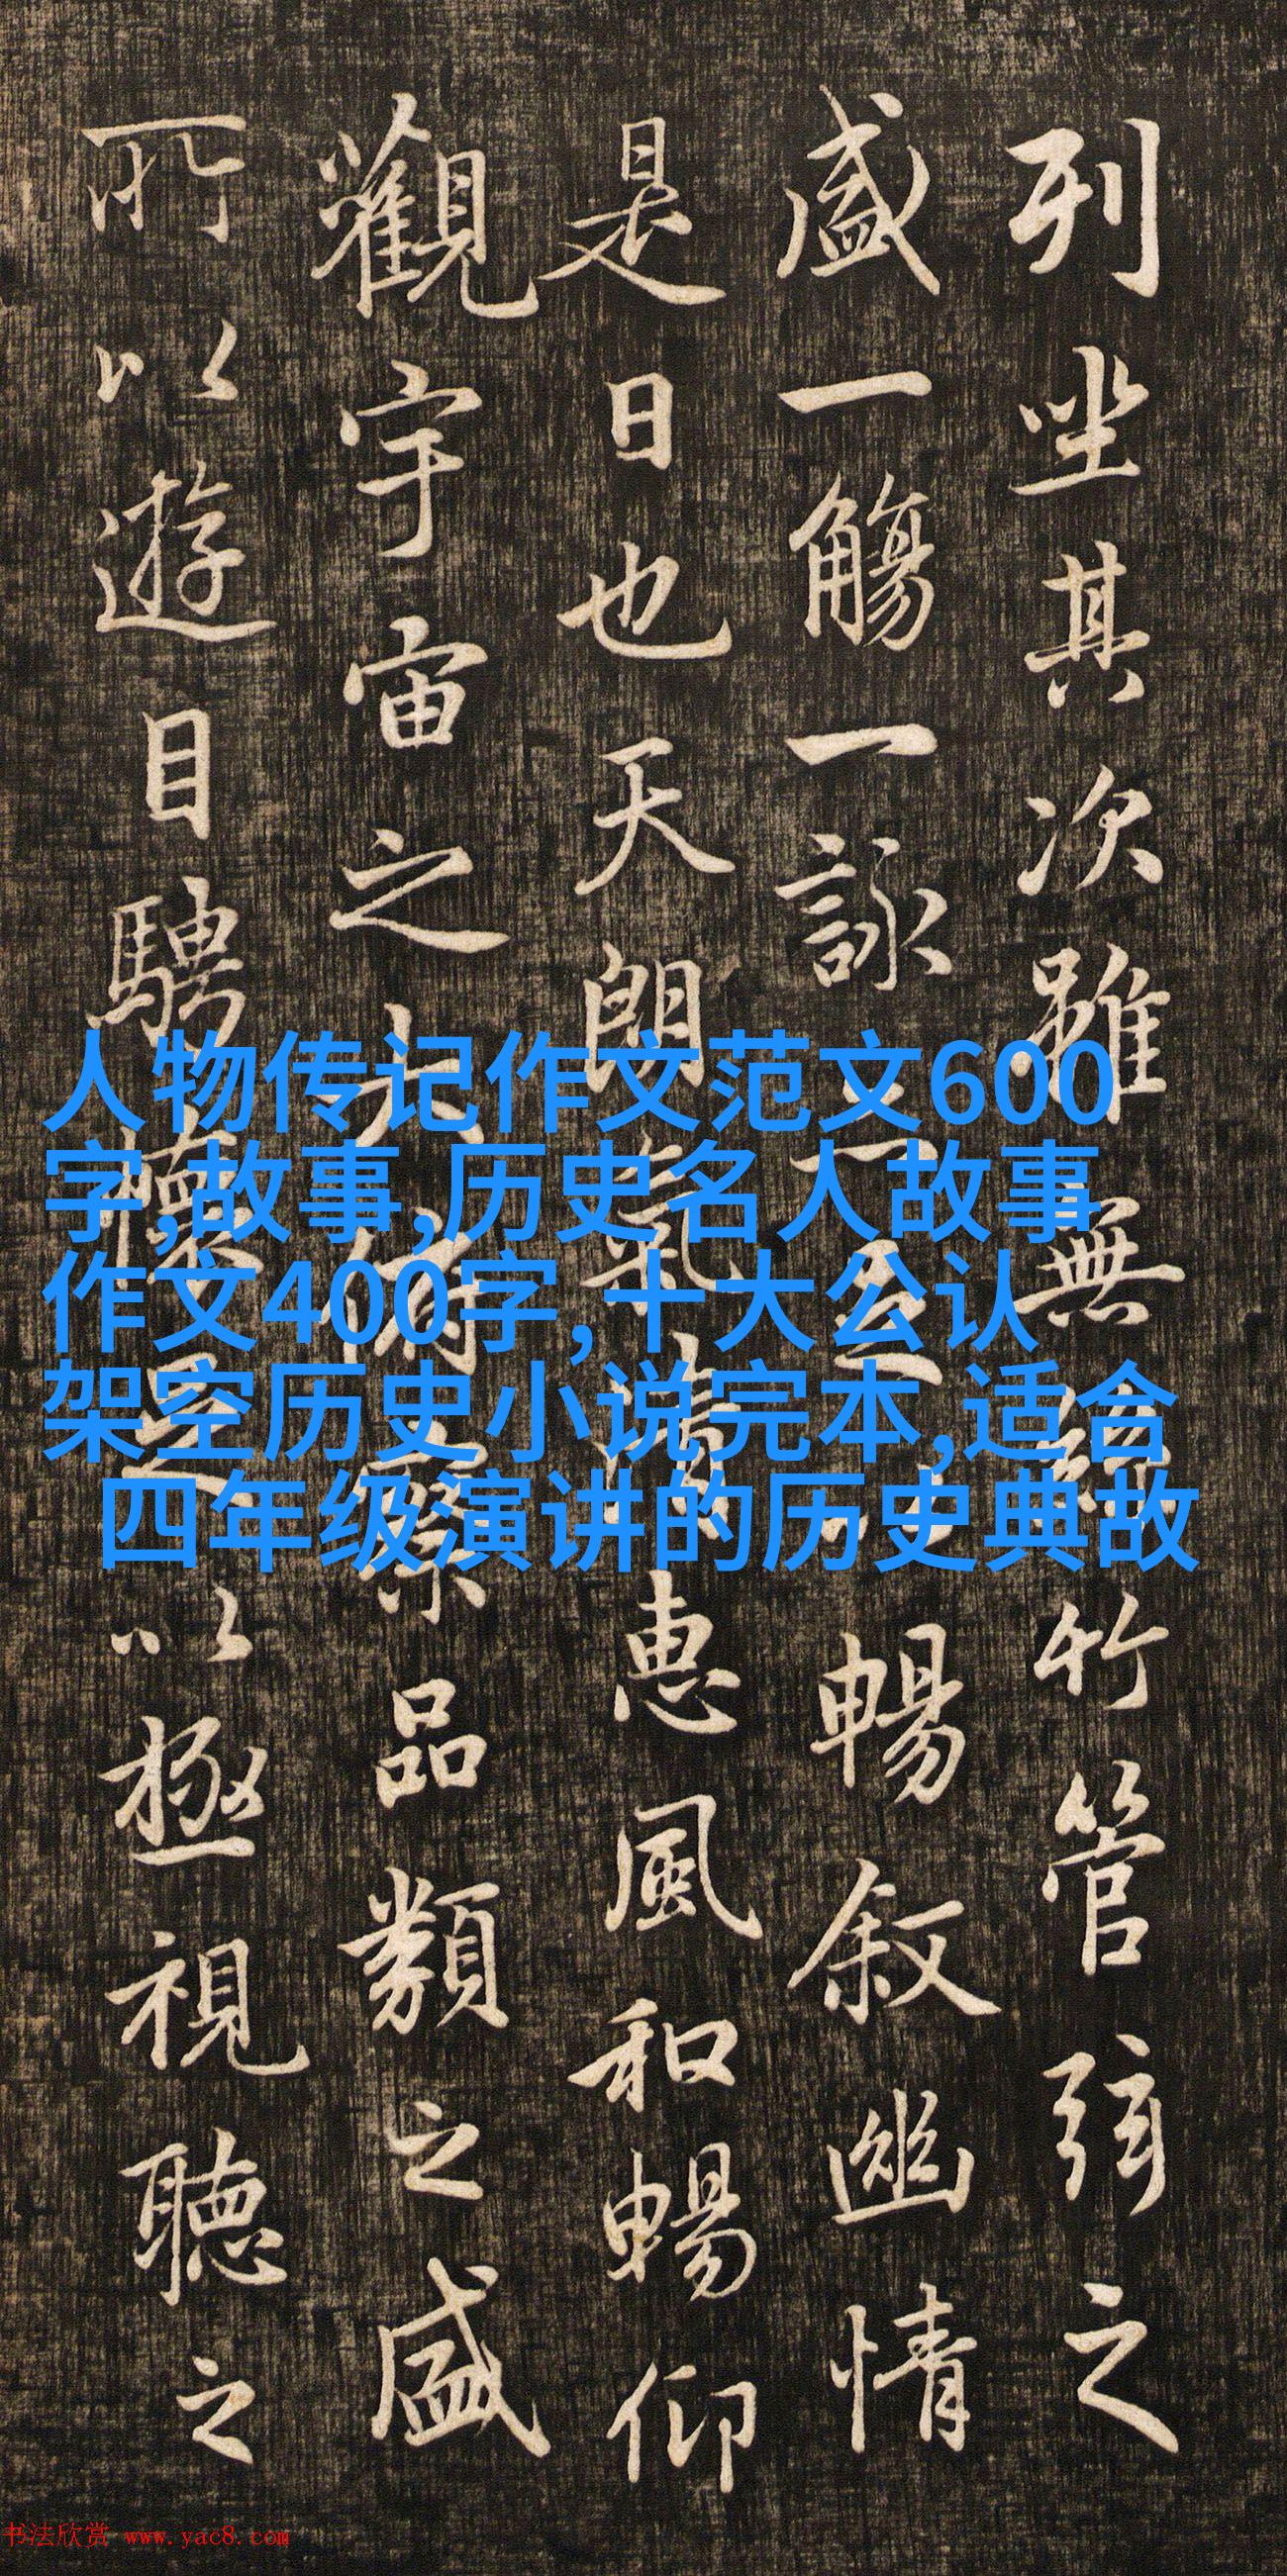 列坐其次雖無絲竹管弦之
盛一觴一詠亦足以暢叙幽情
是日也天朗氣清惠風和暢仰
觀宇宙之大俯察品類之盛
所以遊目騁懷足以極視聽之
人物传记作文范文600
字,故事,历史名人故事
作文400字,十大公认
架空历史小说完本,适合
四年级演讲的历史典故
书法欣赏 www.yac8.com